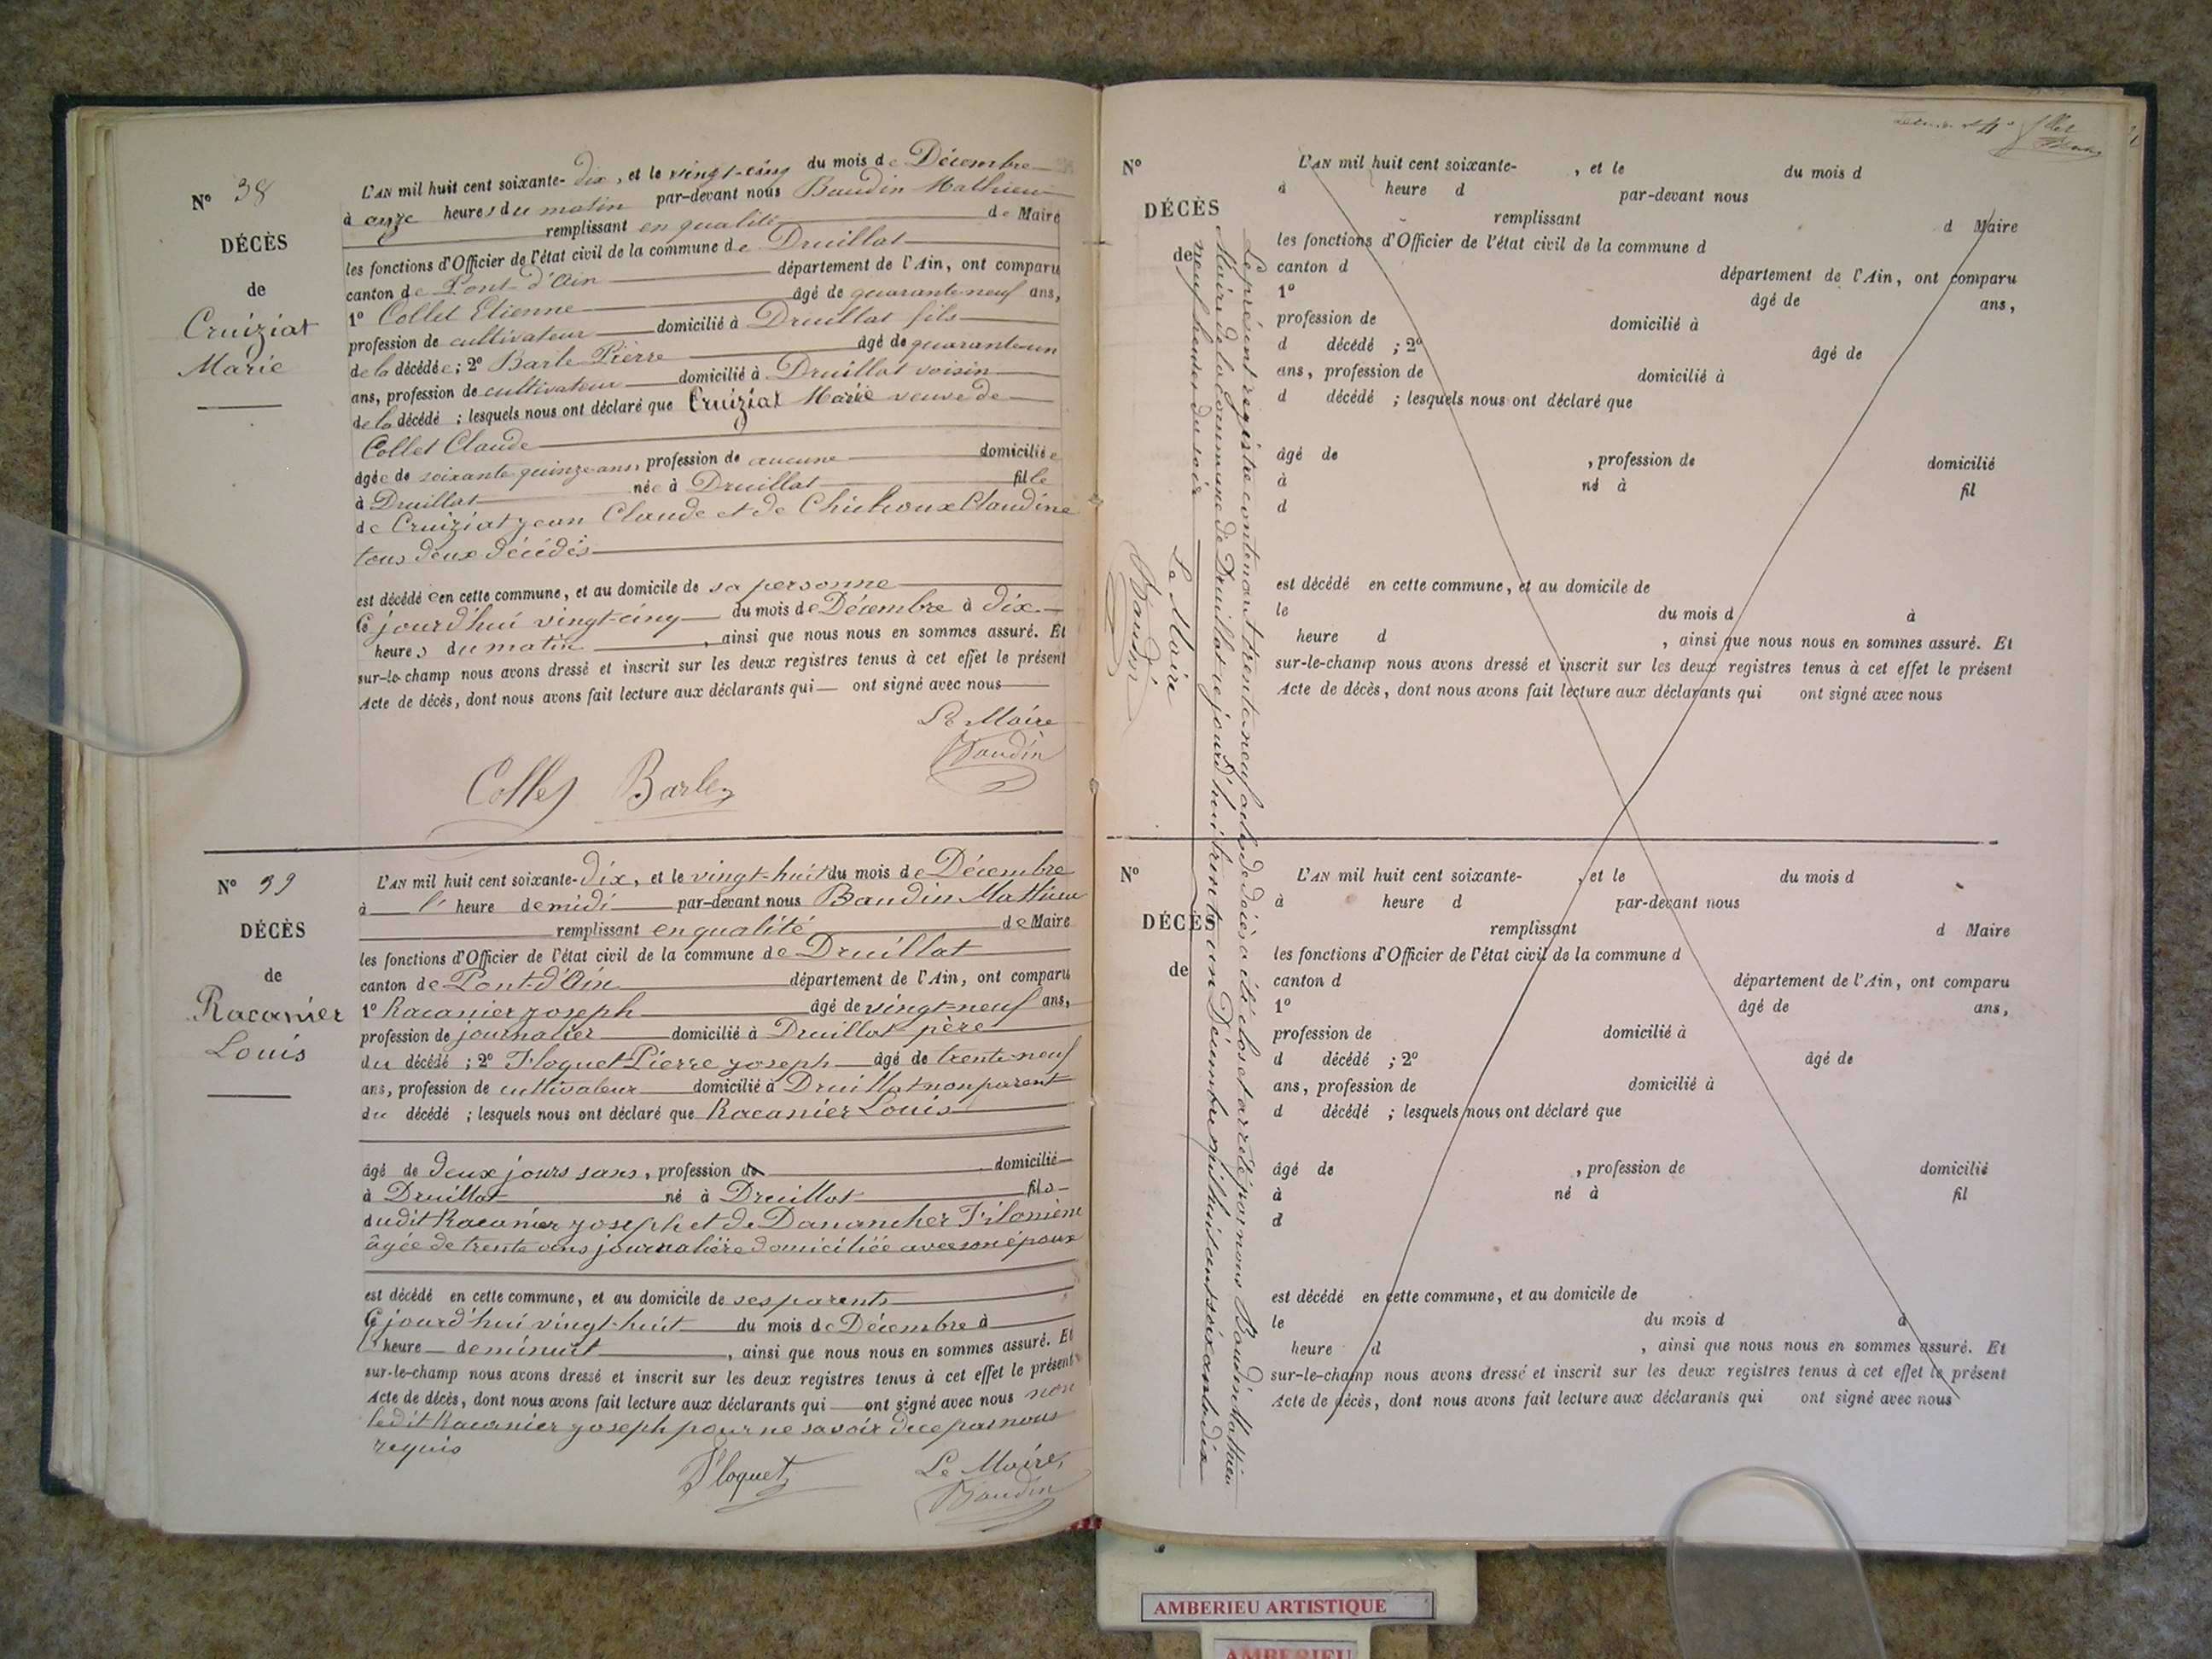 N° 38
DÉCÈS
de
Cruiziat
Marie
L'AN mil huit cent soixante-dix, et le vingt-cinq du mois de Décembre
à onze heures du matin par-devant nous Baudin Mathieu
remplissant en qualité de Maire
les fonctions d'Officier de l'état civil de la commune de Druillat
canton de Pont-d'Ain département de l'Ain, ont comparu
1° Collet Etienne âgé de quarante-neuf ans,
profession de cultivateur domicilié à Druillat fils
de la décédée ; 2° Barle Pierre âgé de quarante-un
ans, profession de cultivateur domicilié à Druillat voisin
de la décédé ; lesquels nous ont déclaré que Cruiziat Marie veuve de
Collet Claude
âgée de soixante quinze ans, profession de aucune domiciliée
à Druillat née à Druillat fille
de Cruiziat Jean Claude et de Claudine
tous deux décédés
est décédée en cette commune, et au domicile de sa personne
Cejourd'hui vingt-cinq du mois de Décembre à dix
heures du matin, ainsi que nous nous en sommes assuré. Et
sur-le-champ nous avons dressé et inscrit sur les deux registres tenus à cet effet le présent
Acte de décès, dont nous avons fait lecture aux déclarants qui ont signé avec nous
Le Maire
Baudin
Collet Barle
N° 39
DÉCÈS
de
Racanier
Louis
L'AN mil huit cent soixante-dix, et le vingt-huit du mois de Décembre
à l'heure de midi par-devant nous Baudin Mathieu
remplissant en qualité de Maire
les fonctions d'Officier de l'état civil de la commune de Druillat
canton de Pont-d'Ain département de l'Ain, ont comparu
1° Racanier Joseph âgé de vingt-neuf ans,
profession de journalier domicilié à Druillat père
du décédé ; 2° Floquet Pierre Joseph âgé de trente-neuf
ans, profession de cultivateur domicilié à Druillat non parent
du décédé ; lesquels nous ont déclaré que Racanier Louis
âgé de deux jours sans, profession de domicilié
à Druillat né à Druillat fils
dudit Racanier Joseph et de Danancher Filomène
âgée de trente ans journalière domiciliée avec son époux
est décédé en cette commune, et au domicile de ses parents
Cejourd'hui vingt-huit du mois de Décembre à
l'heure de minuit, ainsi que nous nous en sommes assuré. Et
sur-le-champ nous avons dressé et inscrit sur les deux registres tenus à cet effet le présent
Acte de décès, dont nous avons fait lecture aux déclarants qui ont signé avec nous non
ledit Racanier Joseph pour ne savoir de ce par nous
requis
Floquet
Le Maire,
Baudin
N°
DÉCÈS
de
L'AN mil huit cent soixante- , et le du mois d
à heure d par-devant nous
remplissant d Maire
les fonctions d'Officier de l'état civil de la commune d
canton d département de l'Ain, ont comparu
1° âgé de ans,
profession de domicilié à
d décédé ; 2° âgé de
ans, profession de domicilié à
d décédé ; lesquels nous ont déclaré que
âgé de , profession de domicilié
à né à fil
d
est décédé en cette commune, et au domicile de
le du mois d à
heure d , ainsi que nous nous en sommes assuré. Et
sur-le-champ nous avons dressé et inscrit sur les deux registres tenus à cet effet le présent
Acte de décès, dont nous avons fait lecture aux déclarants qui ont signé avec nous
N°
DÉCÈS
de
L'AN mil huit cent soixante- , et le du mois d
à heure d par-devant nous
remplissant d Maire
les fonctions d'Officier de l'état civil de la commune d
canton d département de l'Ain, ont comparu
1° âgé de ans,
profession de domicilié à
d décédé ; 2° âgé de
ans, profession de domicilié à
d décédé ; lesquels nous ont déclaré que
âgé de , profession de domicilié
à né à fil
d
est décédé en cette commune, et au domicile de
le du mois d à
heure d , ainsi que nous nous en sommes assuré. Et
sur-le-champ nous avons dressé et inscrit sur les deux registres tenus à cet effet le présent
Acte de décès, dont nous avons fait lecture aux déclarants qui ont signé avec nous
Le présent registre contenant trente-neuf actes de décès a été clos et arrêté par nous Baudin Mathieu
Maire de la commune de Druillat cejourd'hui trente un Décembre mil huit cent soixante dix
neuf heures du soir
Le Maire
Baudin
AMBERIEU ARTISTIQUE
AMBERIEU